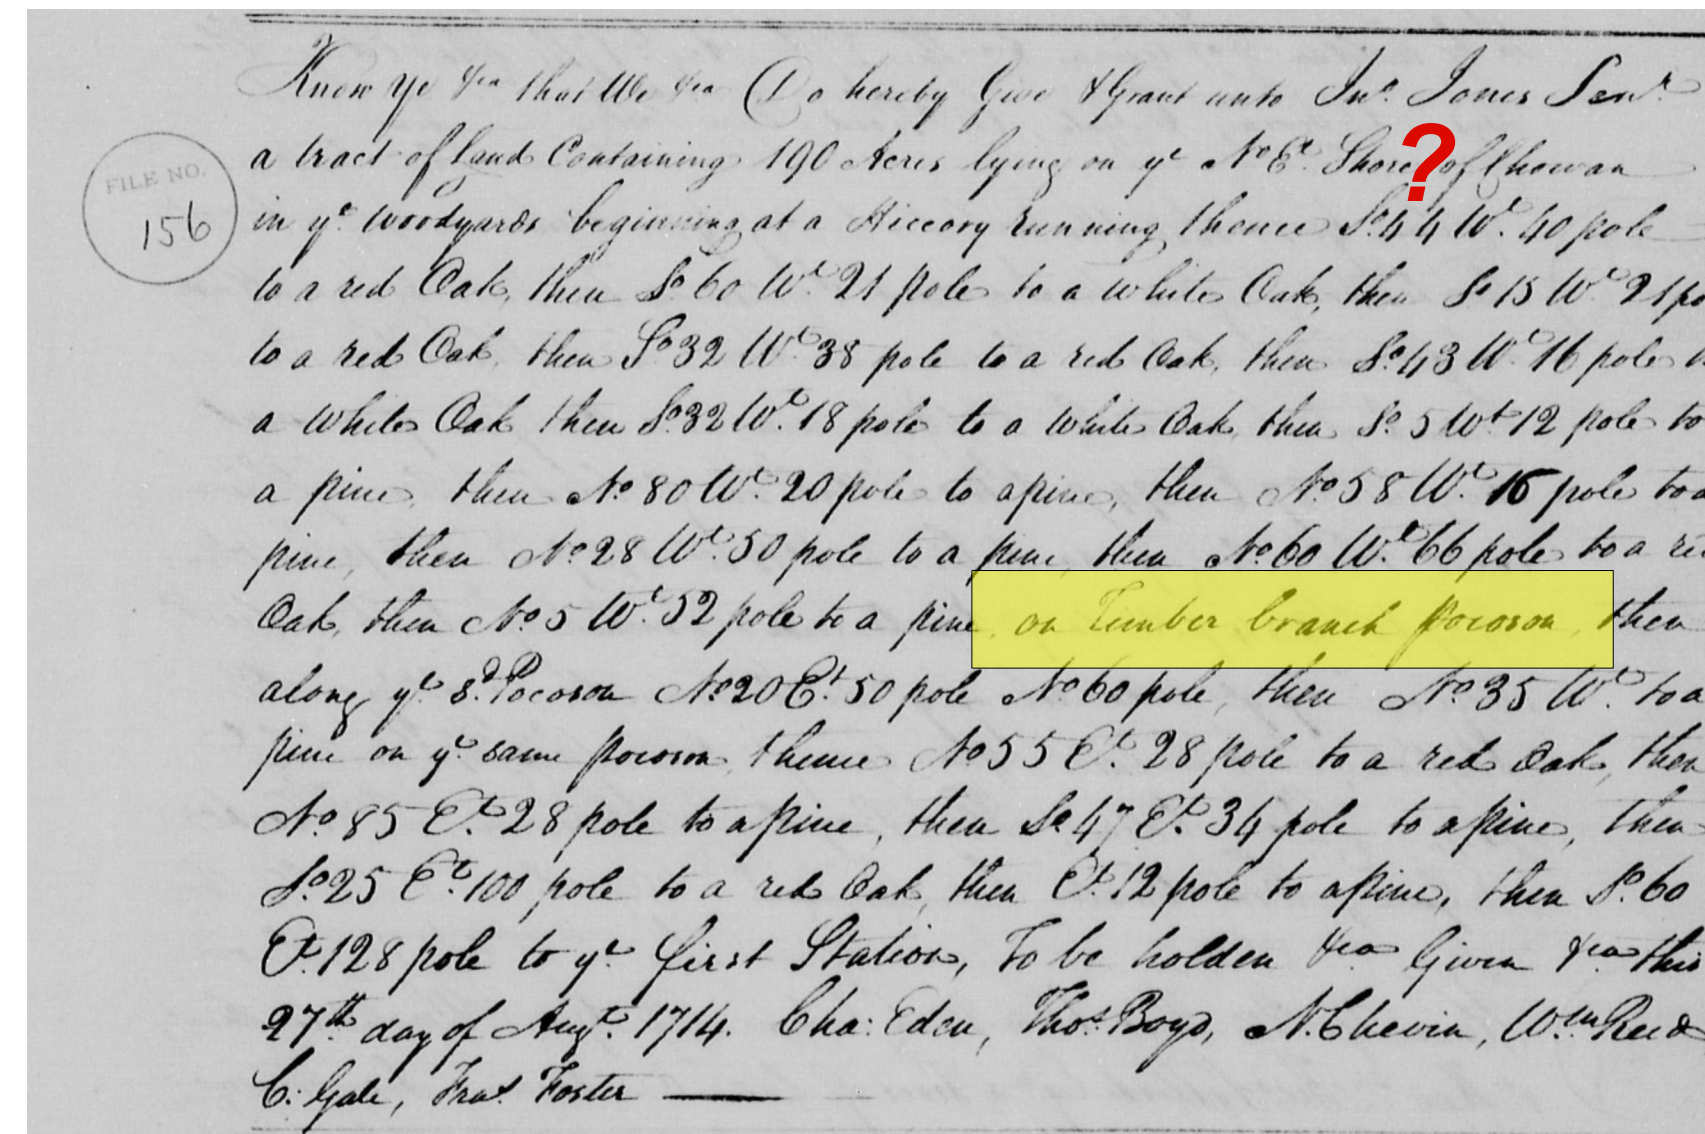 Know Ye &ca that We &ca Do hereby Give & Grant unto Jno. Jones Senr.
?
a tract of Land Containing 190 Acres lying on ye No Et. Shore of Chowan
FILE NO.
156
in ye woodyards beginning at a Hiccory running thence So. 44 Wt. 40 pole
to a red Oak, then So 60 Wt. 21 pole to a white Oak, then So 15 Wt. 21 po
to a red Oak, then So 32 Wt. 38 pole to a red Oak, then So. 43 Wt. 16 pole
a white Oak then So. 32 Wt. 18 pole to a white Oak, then So 5 Wt 12 pole to
a pine, then No 80 Wt. 20 pole to a pine, then No 58 Wt. 16 pole to a
pine, then No. 28 Wt. 50 pole to a pine, then No 60 Wt. 66 pole to a re
Oak, then No 5 Wt. 52 pole to a pine, on Timber branch pocoson, then
along ye sd. Pocoson No. 20 Et. 50 pole No 60 pole, then No 35 Wt. to a
pine on ye same pocoson, thence No 55 Et. 28 pole to a red Oak, then
No. 85 Et. 28 pole to a pine, then So 47 Et. 34 pole to a pine, then
So. 25 Et. 100 pole to a red Oak, then Et. 12 pole to a pine, then So. 60
Et. 128 pole to ye first Station, To be holden &ca Given &ca this
27th day of Augt. 1714. Cha: Eden, Thos. Boyd, N. Chevin, Wm Reed
C: Gale, Fras. Foster